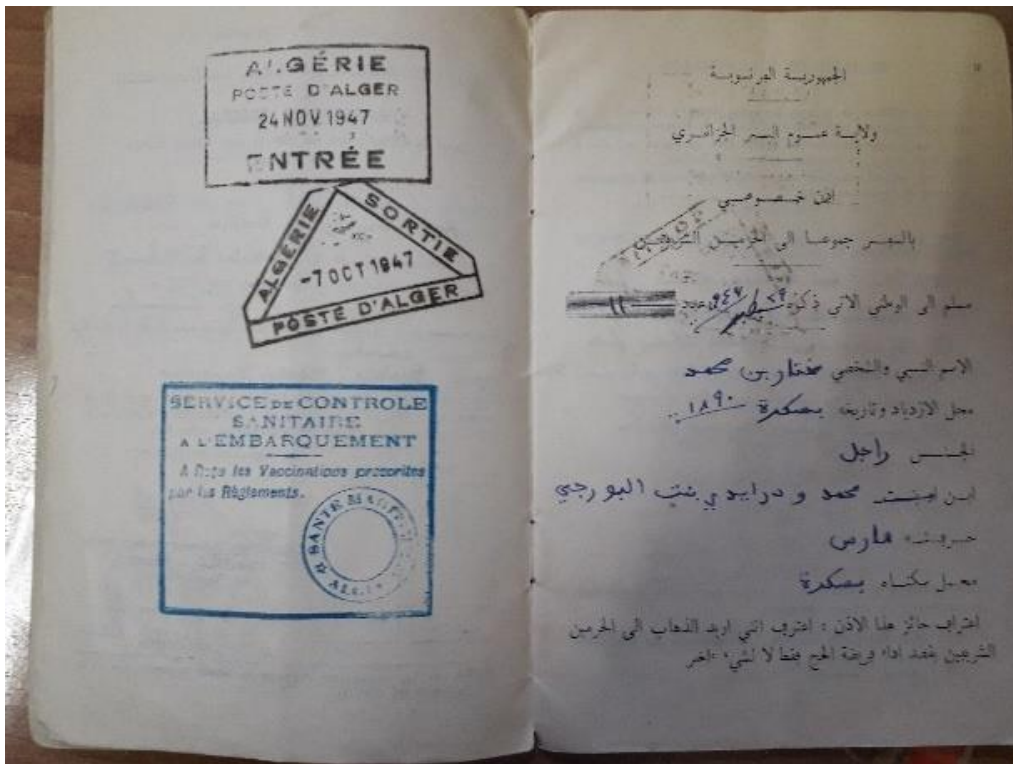 ALGÉRIE
POSTE D'ALGER
24 NOV 1947
ENTRÉE
ALGÉRIE
SORTIE
-7 OCT 1947
POSTE D'ALGER
SERVICE DE CONTROLE
SANITAIRE
A L'EMBARQUEMENT
A Reçu les Vaccinations prescrites
par les Règlements.
SANTE
ALGER
الجمهورية الفرنسوية
ولاية عموم البر الجزائري
اذن خصوصي
بالسفر جموعا الى الحرمين الشريفين
مسلم الى الوطني الاتي ذكره
الاسم النسبي والشخصي مختار بن محمد
محل الازدياد وتاريخه بسكرة ١٨٩٠
الجنس راجل
ابن محمد و درايدي بنت البورجي
حرفته
محل سكناه بسكرة
اعتراف حائز هذا الاذن : اعترف انني اريد الذهاب الى الحرمين
الشريفين بقصد اداء فريضة الحج فقط لا لشيء ءاخر